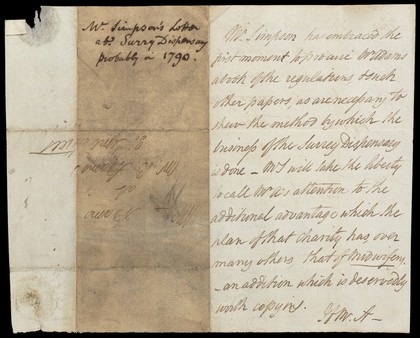 Mr. Simpson's Letter
abt. Surry Dispensary
probably in 1790.
Mr. Simpson has embraced the
first moment to procure Mr Adams
a book of the regulations & such
other papers, as are necessary to
shew the method by which the
business of the Surrey Dispensary
is done – Mr S will take the liberty
to call Mr A's attention to the
additional advantage which the
plan of that charity has over
many others that of Midwifery
– an addition which is deservedly
worth copying.